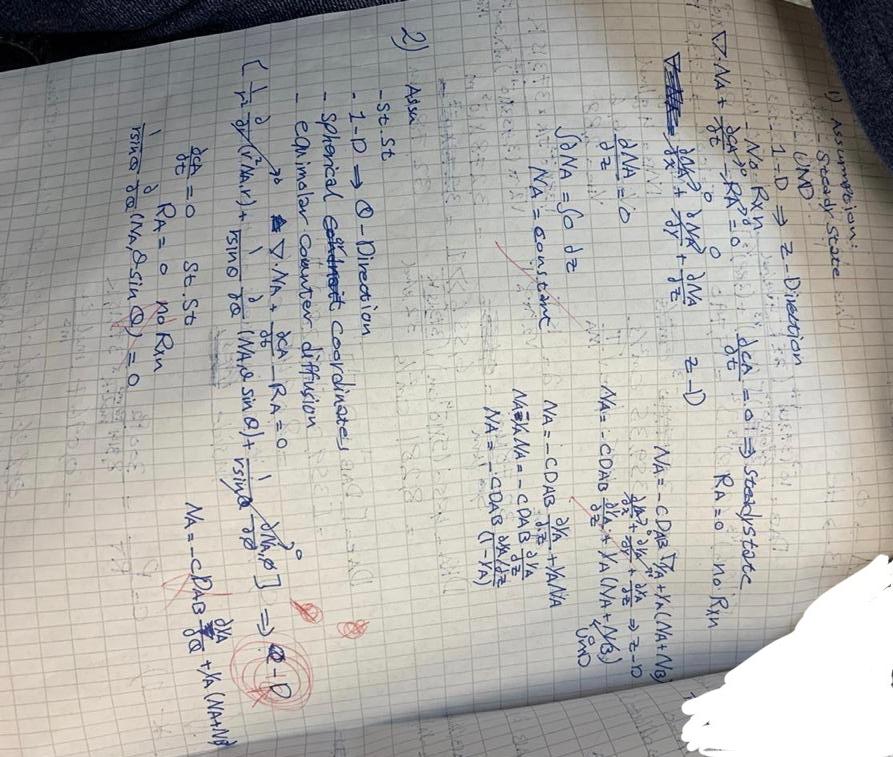 1) Assumption:
- Steady State
- UMD
1-D ⇒ z-Direction
- No Rxn
∇·NA + ∂CA/∂t - RA = 0
∂CA/∂t = 0 ⇒ Steady State
RA = 0 no Rxn
∂NA/∂x + ∂NA/∂y + ∂NA/∂z z-D
∂NA/∂z = 0
∫∂NA = ∫0 dz
NA = constant
NA = -CDAB ∇YA + YA (NA + NB)
∂YA/∂x + ∂YA/∂y + ∂YA/∂z ⇒ z-D
NA = -CDAB ∂YA/∂z + YA (NA + NB) UMD
NA = -CDAB ∂YA/∂z + YA NA
NA - YA NA = -CDAB ∂YA/∂z
NA = -CDAB ∂YA/∂z / (1-YA)
2) Assu
- St. St
- 1-D ⇒ θ-Direction
- Spherical coordinates
- equimolar counter diffusion
∇·NA + ∂CA/∂t - RA = 0
[1/r² ∂/∂r (r² NA,r) + 1/rsinθ ∂/∂θ (NA,θ sinθ) + 1/rsinθ ∂NA,φ/∂φ] ⇒ θ-D
∂CA/∂t = 0 St. St
RA = 0 no Rxn
1/rsinθ ∂/∂θ (NA,θ sinθ) = 0
NA = -CDAB ∂YA/∂θ + YA (NA+NB)